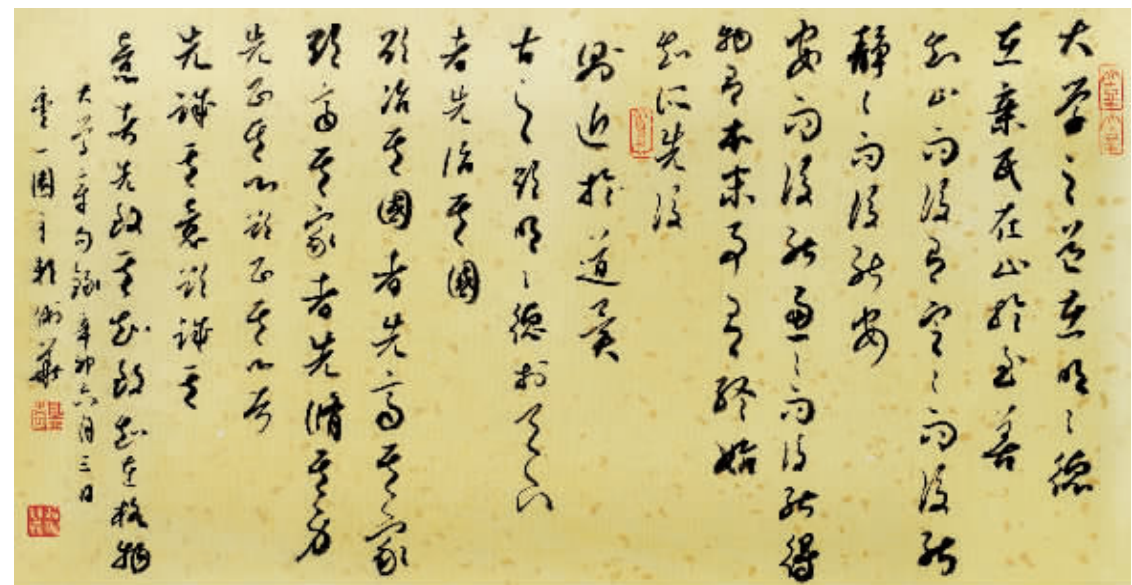 大学之道在明々德
在亲民在止於至善
知止而後有定々而後能
靜々而後能安
安而後能慮々而後能得
物有本末事有終始
知所先後
則近於道矣
古之欲明々德於天下
者先治其國
欲治其國者先齊其家
欲齊其家者先脩其身
先正其心欲正其心者
先誠其意欲誠其
意者先致其知致知在格物
大學章句錄辛卯六月三日
一園主